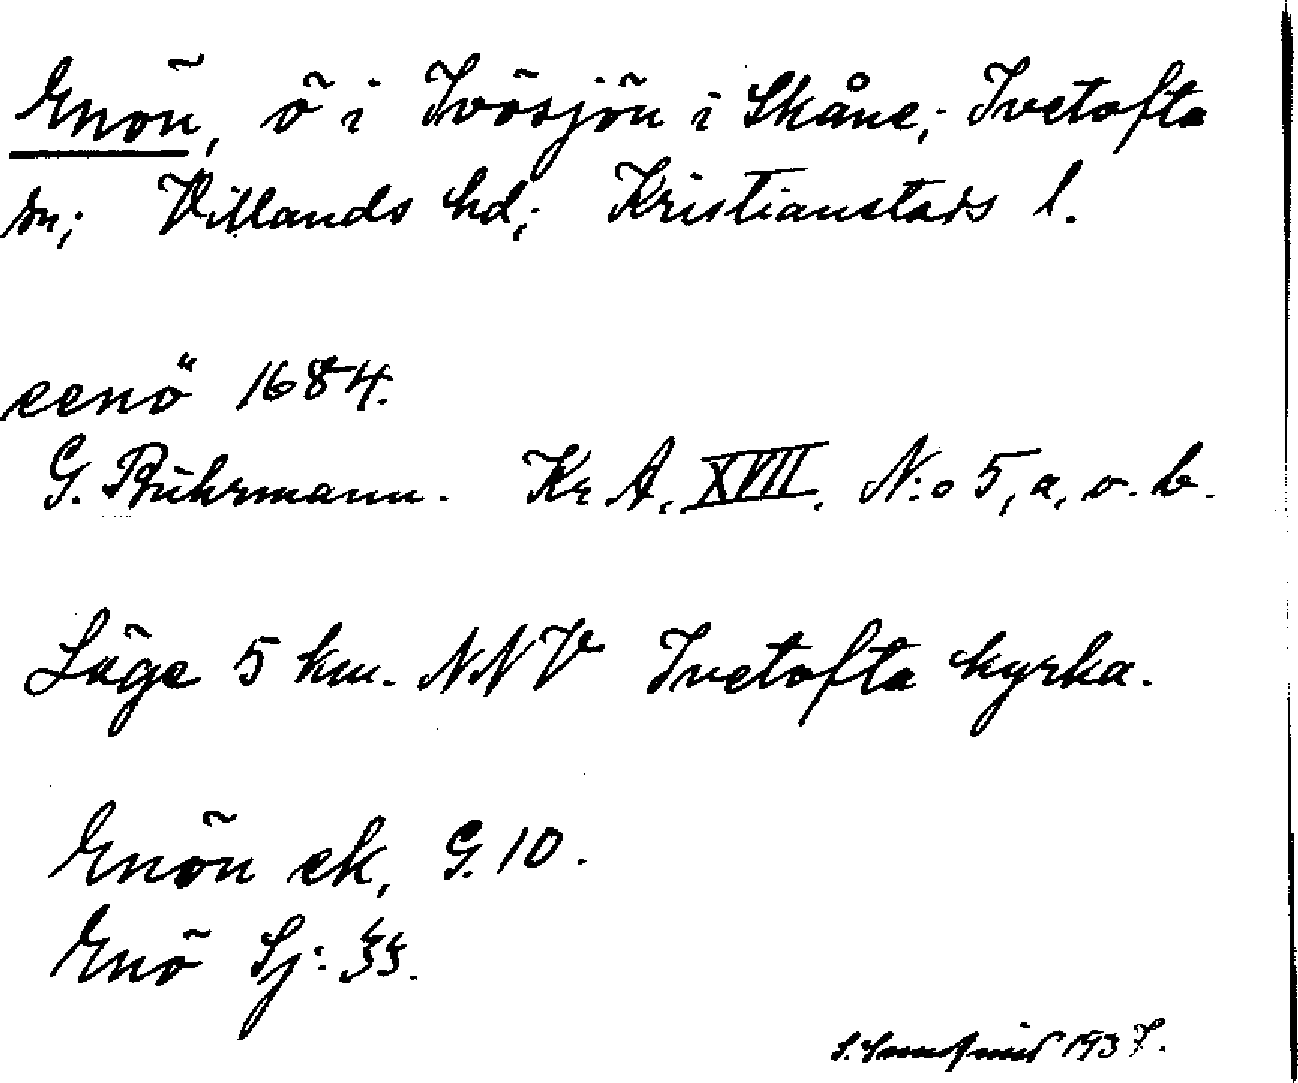 Enön, ö i Ivösjön i Skåne; Ivetofta
sn; Villands hd; Kristianstads l.
eenö 1684.
G. Buhrmann. Kr A. XVII. N:o 5, a, o. b.
Läge 5 km. NNV Ivetofta kyrka.
Enön ek, G. 10.
Enö Sj: 33.
1937.